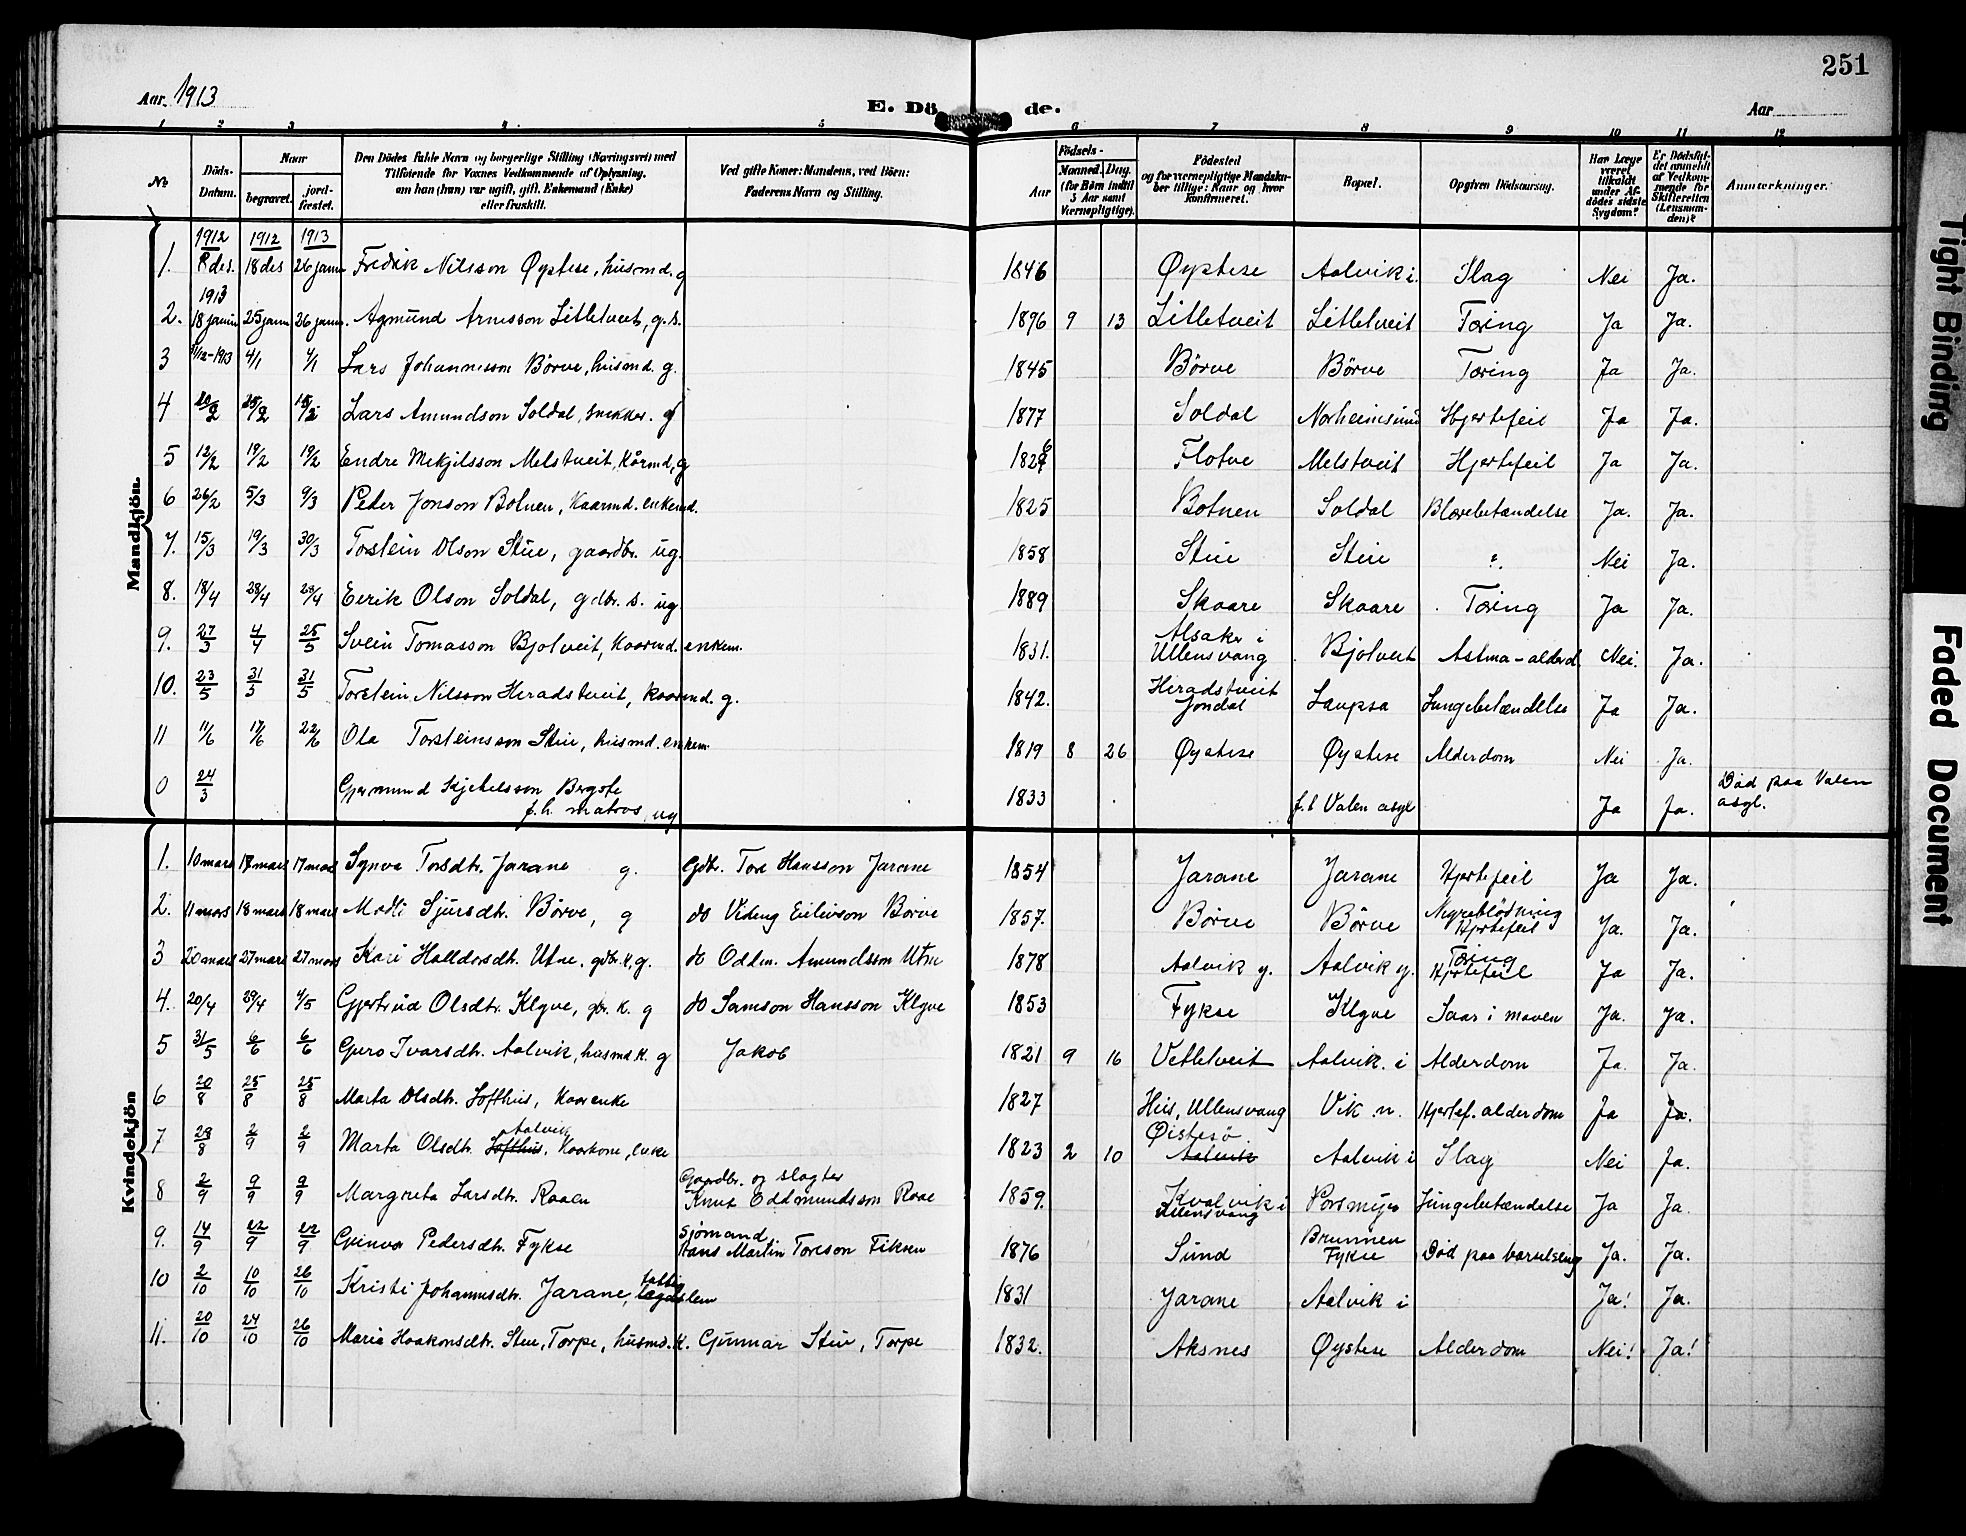 251
Aar 1913
E. Dö de.
Aar
1 2 3 4 5 6 7 8 9 10 11 12
No
Döds-Datum.
Naar
begravet.
jord-fæstet.
Den Dödes fulde Navn og borgerlige Stilling (Næringsvei) med Tilföiende for Voxnes Vedkommende af Oplysning, om han (hun) var ugift, gift, Enkemand (Enke) eller fraskilt.
Ved gifte Koner: Mandens, ved Börn: Faderens Navn og Stilling.
Födsels-
Aar
Maaned. Dag.
(for Börn indtil 5 Aar samt Værnepligtige).
Födested og for værnepligtige Mandskaber tillige: Naar og hvor konfirmeret.
Bopæl.
Opgiven Dödsaarsag.
Har Læge været tilkaldt under Afdödes sidste Sygdom?
Er Dödsfaldet anmeldt af Vedkommende for Skifteretten (Lensmanden)?
Anmærkninger.
Mandkjön.
1912 1912 1913
1. 8 des. 18 des 26 janu Fredrik Nilsson Øystese, husmd. g 1846 Øystese Aalvik i. Slag Nei Ja.
1913
2. 18 janu 25 janu 26 janu. Agmund Arnesson Litletveit, g. s. 1896 9 13 Litletveit Litletveit Tæring Ja Ja.
3 1/12-1913 4/1 4/1 Lars Johannesson Börve, husmd. g. 1845 Börve Börve Tæring Ja Ja.
4 Lars Amundson Soldal, snekker. g 1877 Soldal Norheimsund Hjertefeil Ja Ja.
5 12/2 19/2 19/2 Endre Mekjelsson Melstveit, Kårmd, g Flotve Melstveit Hjertefeil Ja Ja.
6 26/2 5/3 9/3 Peder Jonson Botnen, Kaarmd. enkemd. 1825 Botnen Soldal Blærebetændelse Ja. Ja.
7. 15/3 19/3 30/3 Torstein Olson Stue, gaardbr. ug. 1858 Stue Stue ?. Nei Ja.
8. 18/4 28/4 28/4 Eerik Olson Soldal, gdbr. s. ug. 1889 Skaare Skaare Tæring Ja Ja.
9. 27/3 4/4 25/5 Svein Tomasson Bjolveit, Kaarmd. enkem. 1831. Alsaker i Ullensvang Bjolveit Astma-alderd Nei. Ja.
10. 23/5 31/5 31/5 Torstein Nilsson Heradstveit, kaarmd. g. 1842. Heradstveit Jondal Laupsa Lungebetændelse Ja Ja.
11 11/6 17/6 22/6 Ola Torsteinsson Stue, husmd. enkem. 1819 8 26 Øystese Øystese Alderdom Nei Ja.
0 24/3 Gjermund Kjetelsson Bergste f.h. matros, ug 1833 f.t Valen asyl Ja Ja. Död paa Valen asyl.
Kvindekjön
1. 10 mars 17 mars 17 mars Synva Torsdtr. Jarane g. Gdbr. Tore Hansson Jarane 1854 Jarane Jarane Hjertefeil Ja Ja.
2. 11 mars 18 mars 18 mars Madli Sjursdtr. Börve, g do Viding Eilivson Börve 1857. Börve Börve Nyreblödning Hjertefeil Ja. Ja.
3 20 mars 27 mars 27 mars Kari Halldorsdtr. Utne. gdbr. k, g. do Oddm. Amundsson Utne 1878 Aalvik y. Aalvik y. Tæring Hjertefeil Ja Ja.
4. 20/4 29/4 4/5 Gjertrud Olsdtr. Klyve, gbr. k. g do Samson Hansson Klyve 1853 Fykse Klyve Saar i maven Ja. Ja.
5 31/5 6/6 6/6 Guro Ivarsdtr. Aalvik, husmd. k. g Jakob 1821 9 16 Vetletveit Aalvik. i Alderdom Ja. Ja.
6 20/8 25/8 25/8 Marta Olsdtr. Lofthus, Kaarenke 1827 Hus, Ullensvang Vik n. Hjertef. alderdom Ja Ja.
7 28/8 2/9 2/9 Marta Olsdtr. Lofthus Aalvik Kaarkone, enke 1823 2 10 Øistesö Aalvik Aalvik i Slag Nei Ja.
8 2/9 9/9 9/9 Margreta Larsdtr. Raaen Gaardbr. og slagter Knut Oddmundsson Raae 1859. Kvalvik i Ullensvang Porsmyr Lungebetændelse Ja Ja.
9. 14/9 22/9 22/9 Gunvor Pedersdtr. Fykse Sjömand Hans Martin Toreson Fiksen 1876 Sund Brunnen Fykse Död paa barselseng Ja. Ja.
10 2/10 10/10 26/10 Kristi Johannesdtr. Jarane, fattig lægdslem 1831 Jarane Aalvik i Ja! Ja.
11. 20/10 24/10 26/10 Maria Haakonsdtr. Stue, Torpe, husmd. K. Gunnar Stue, Torpe 1832. Aksnes Øystese Alderdom Nei! Ja!
Tight Binding
Faded Document